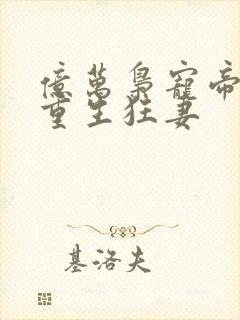 億萬梟寵帝
重生狂妻
基洛夫